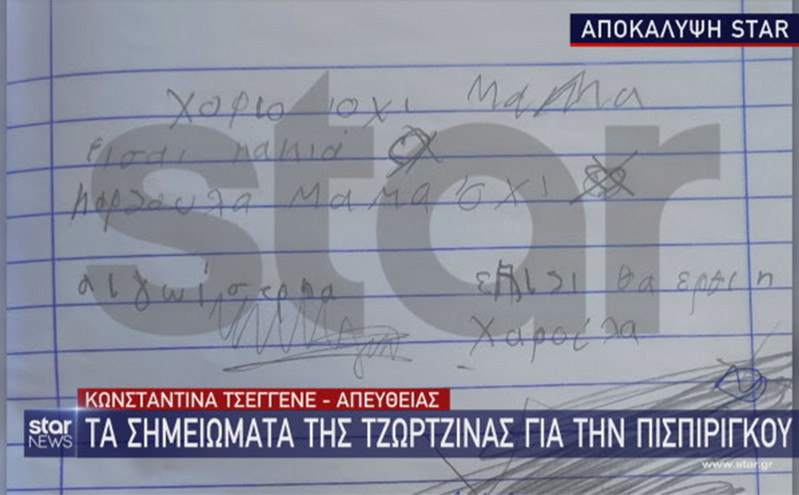 ΑΠΟΚΑΛΥΨΗ STAR
χοριο ιοχι μαΜα
εισαι κακιά
μαμα όχι
star
επισι θα ερθι η
Χαρούλα
ΚΩΝΣΤΑΝΤΙΝΑ ΤΣΕΓΓΕΝΕ - ΑΠΕΥΘΕΙΑΣ
star NEWS
ΤΑ ΣΗΜΕΙΩΜΑΤΑ ΤΗΣ ΤΖΩΡΤΖΙΝΑΣ ΓΙΑ ΤΗΝ ΠΙΣΠΙΡΙΓΚΟΥ
www.star.gr